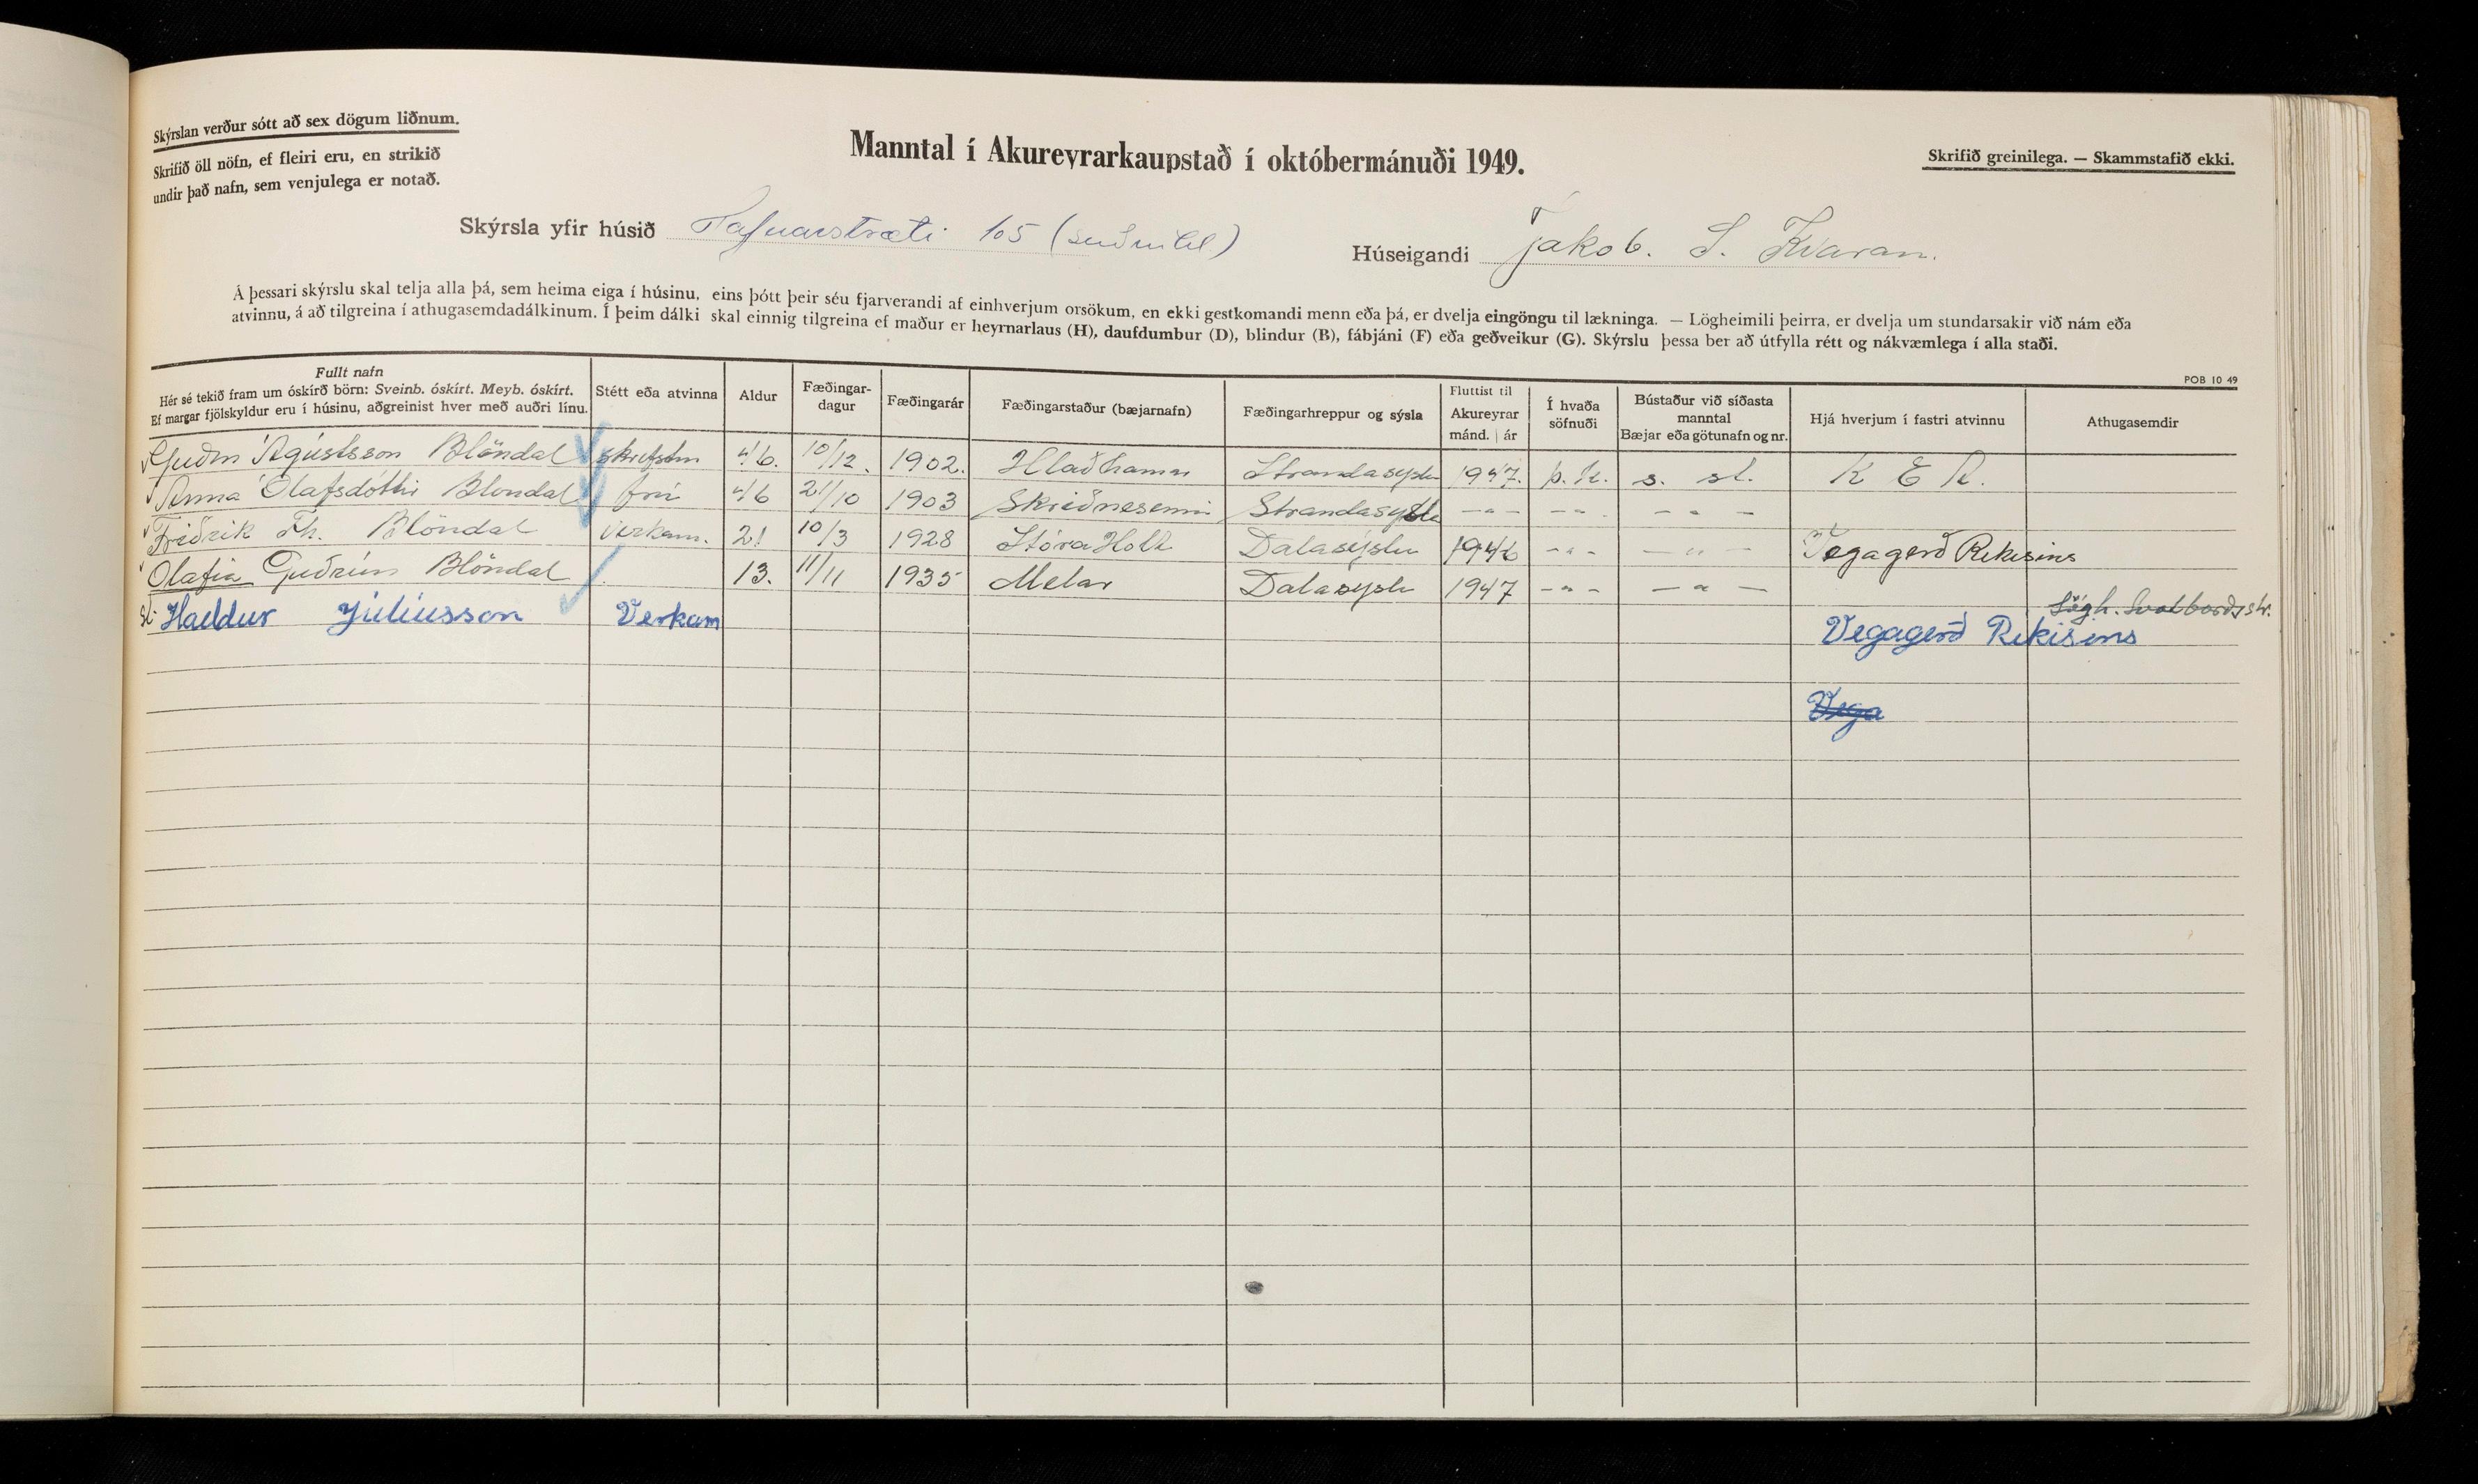 Skýrslan verður sótt að sex dögum liðnum.
Skrifið öll nöfn, ef fleiri eru, en strikið
undir það nafn, sem venjulega er notað.
Manntal í Akureyrarkaupstað í októbermánuði 1949.
Skrifið greinilega. — Skammstafið ekki.
Skýrsla yfir húsið Hafnarstræti 105
Húseigandi Jakob. S. Kvaran.
Á þessari skýrslu skal telja alla þá, sem heima eiga í húsinu, eins þótt þeir séu fjarverandi af einhverjum orsökum, en ekki gestkomandi menn eða þá, er dvelja eingöngu til lækninga. — Lögheimili þeirra, er dvelja um stundarsakir við nám eða
atvinnu, á að tilgreina í athugasemdadálkinum. Í þeim dálki skal einnig tilgreina ef maður er heyrnarlaus (H), daufdumbur (D), blindur (B), fábjáni (F) eða geðveikur (G). Skýrslu þessa ber að útfylla rétt og nákvæmlega í alla staði.
POB 10 49
Fullt nafn
Hér sé tekið fram um óskírð börn: Sveinb. óskírt. Meyb. óskírt.
Ef margar fjölskyldur eru í húsinu, aðgreinist hver með auðri línu.
Stétt eða atvinna
Aldur
Fæðingar-
dagur
Fæðingarár
Fæðingarstaður (bæjarnafn)
Fæðingarhreppur og sýsla
Fluttist til
Akureyrar
mánd. | ár
Í hvaða
söfnuði
Bústaður við síðasta
manntal
Bæjar eða götunafn og nr.
Hjá hverjum í fastri atvinnu
Athugasemdir
Ágústsson Blöndal 46. 10/12. 1902. Hlaðhamri Strandasýslu 1947. þ. k. s. st. K E A.
Anna Ólafsdóttir Blöndal frú 46 21/10 1903 Skriðnesenni Strandasýslu -"- -"- - " -
Friðrik Th. Blöndal Verkam. 21 10/3 1928 Stóra Holt Dalasýslu 1946 -"- - " - Vegagerð Rikisins
Olafia Guðrún Blöndal 13. 11/11 1935 Melar Dalasýslu 1947 -"- - " -
st. Haldur Júliusson Verkam Vegagerð Rikisins Lögh. Svalbarðsstr.
Vega